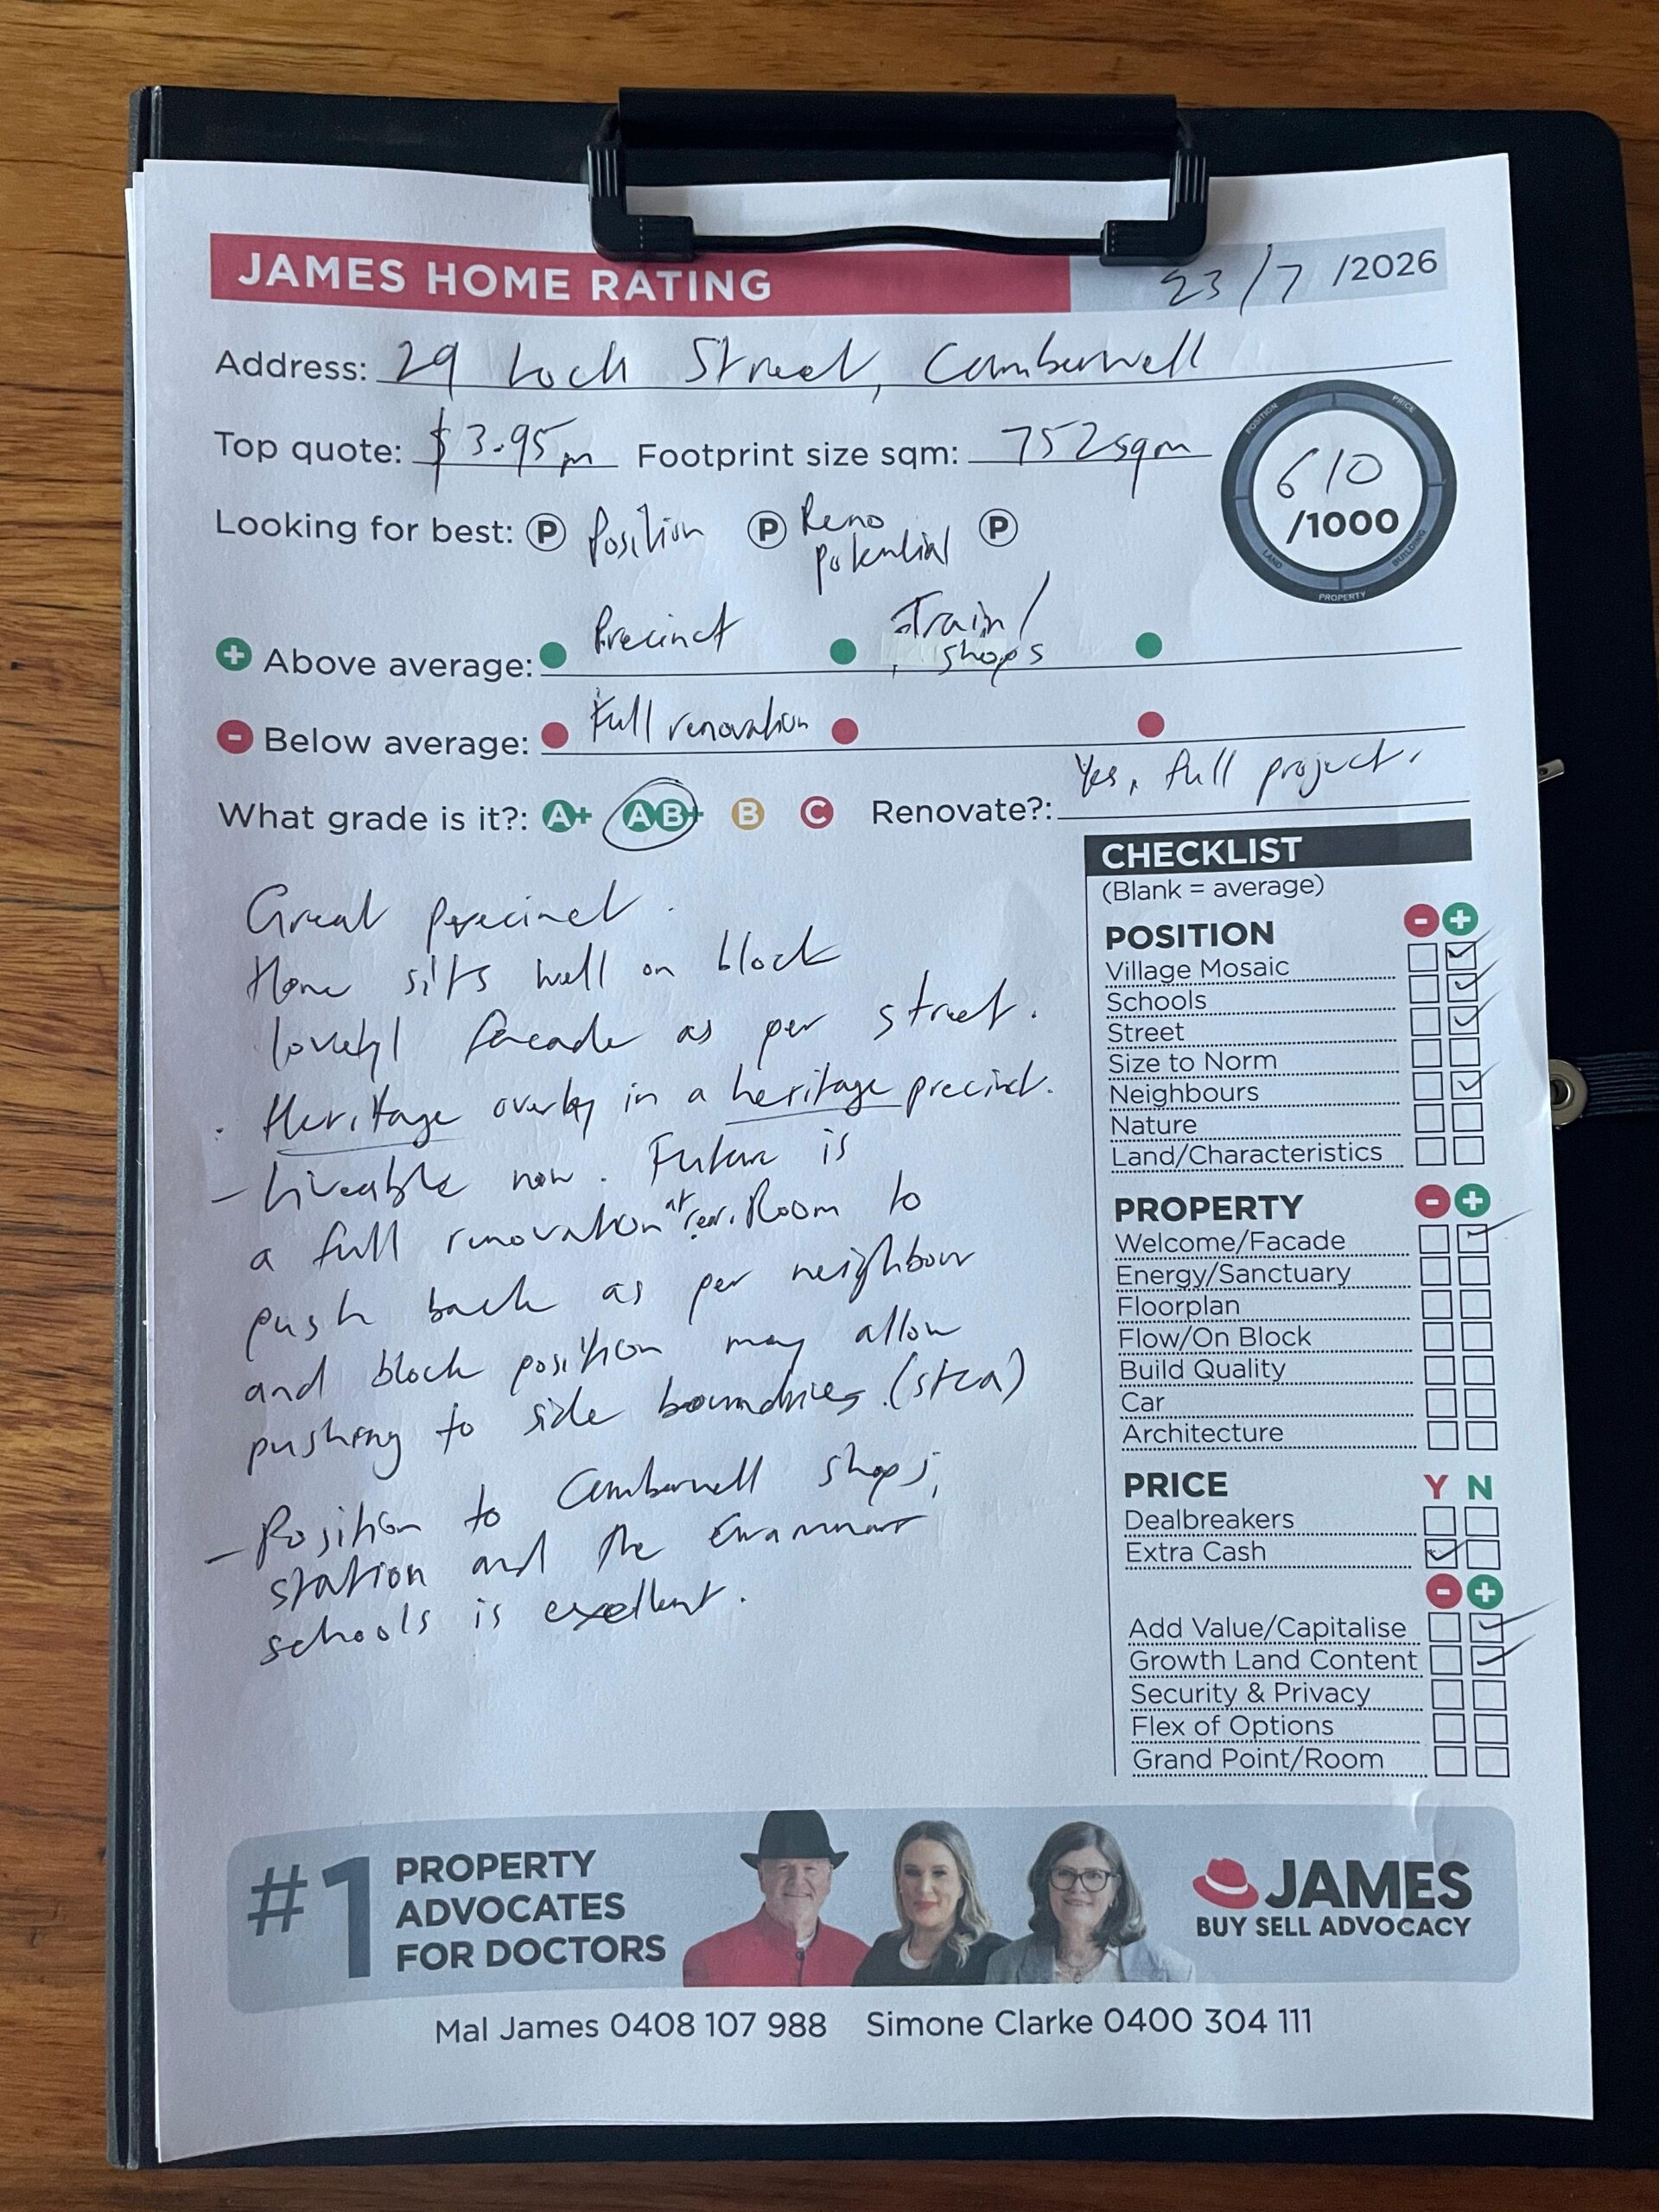 JAMES HOME RATING 23/7/2026
Address: 29 Loch Street, Camberwell
Top quote: $3.95m Footprint size sqm: 752sqm
610 /1000
POSITION PRICE BUILDING PROPERTY LAND
Looking for best: P Position P Reno potential P
+ Above average: Precinct Train/ shops
- Below average: Full renovation
What grade is it?: A+ AB+ B C Renovate?: Yes, full project.
Great precinct.
Home sits well on block
lovely facade as per street.
. Heritage overlay in a heritage precinct.
- Liveable now. Future is
a full renovation at rear. Room to
push back as per neighbour
and block position may allow
pushing to side boundries. (stca)
- Position to Camberwell shops,
station and the Grammar
schools is excellent.
CHECKLIST
(Blank = average)
POSITION - +
Village Mosaic
Schools
Street
Size to Norm
Neighbours
Nature
Land/Characteristics
PROPERTY - +
Welcome/Facade
Energy/Sanctuary
Floorplan
Flow/On Block
Build Quality
Car
Architecture
PRICE Y N
Dealbreakers
Extra Cash
- +
Add Value/Capitalise
Growth Land Content
Security & Privacy
Flex of Options
Grand Point/Room
#1 PROPERTY
ADVOCATES
FOR DOCTORS
JAMES
BUY SELL ADVOCACY
Mal James 0408 107 988 Simone Clarke 0400 304 111